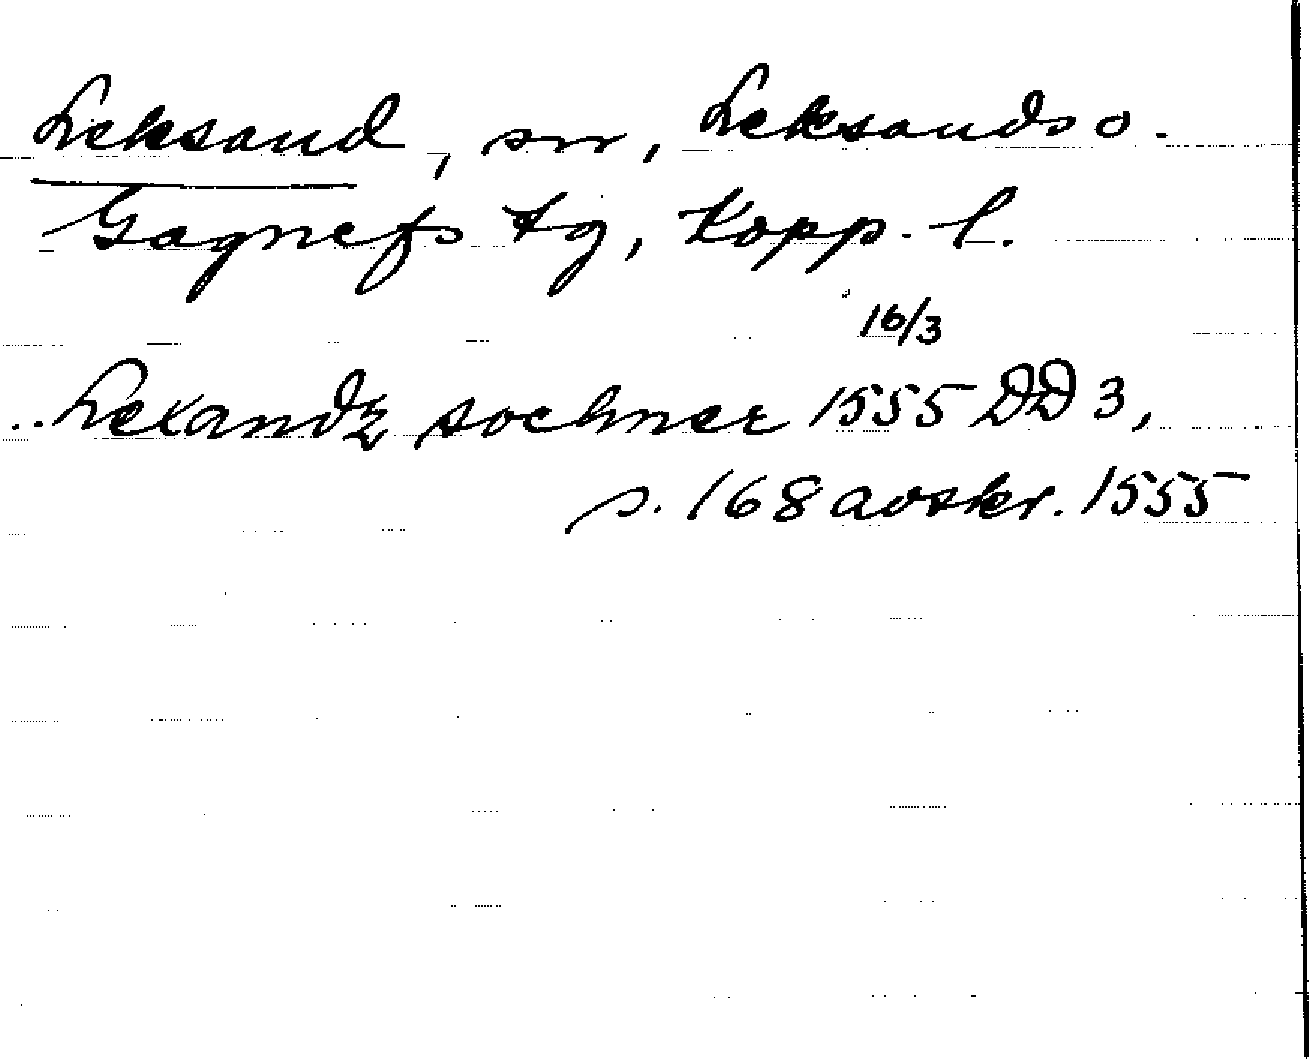 Leksand, sn, Leksands o.
Gagnefs tg, Kopp. l.
16/3
.. Lexandz sochner 1555 DD 3,
s. 168 avskr. 1555